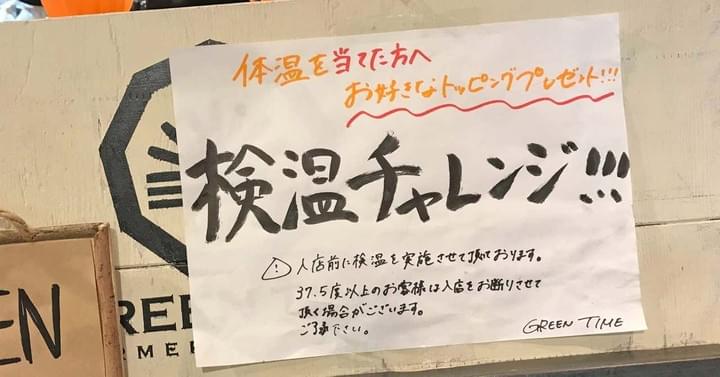 体温を当てた方へ
お好きなトッピングプレゼント!!!
検温チャレンジ!!!
! 入店前に検温を実施させて頂ております。
37.5度以上のお客様は入店をお断りさせて
頂く場合がございます。
ご了承下さい。
GREEN TIME
EN
REE
RMER